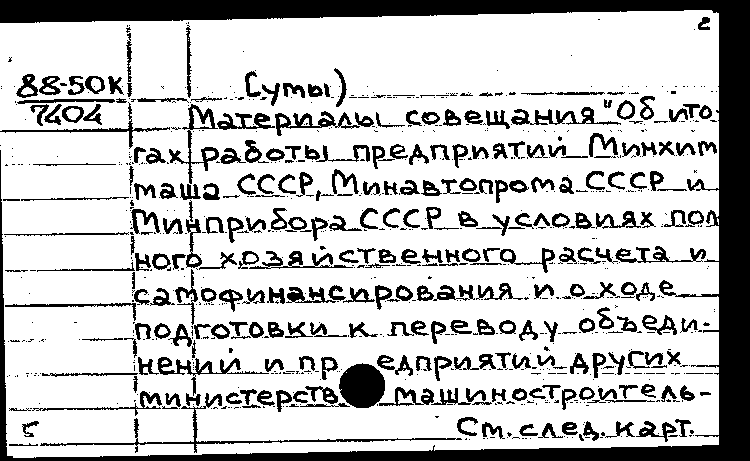 2
88-50К (Суты)
7404 Материалы совещания "Об ито-
гах работы предприятий Минхим
маша СССР, Минавтопрома СССР и
Минприбора СССР в условиях пол
ного хозяйственного расчета и
самофинансирования и о ходе
подготовки к переводу объеди-
нений и предприятий других
министерств машиностроитель-
5 См. след. карт.